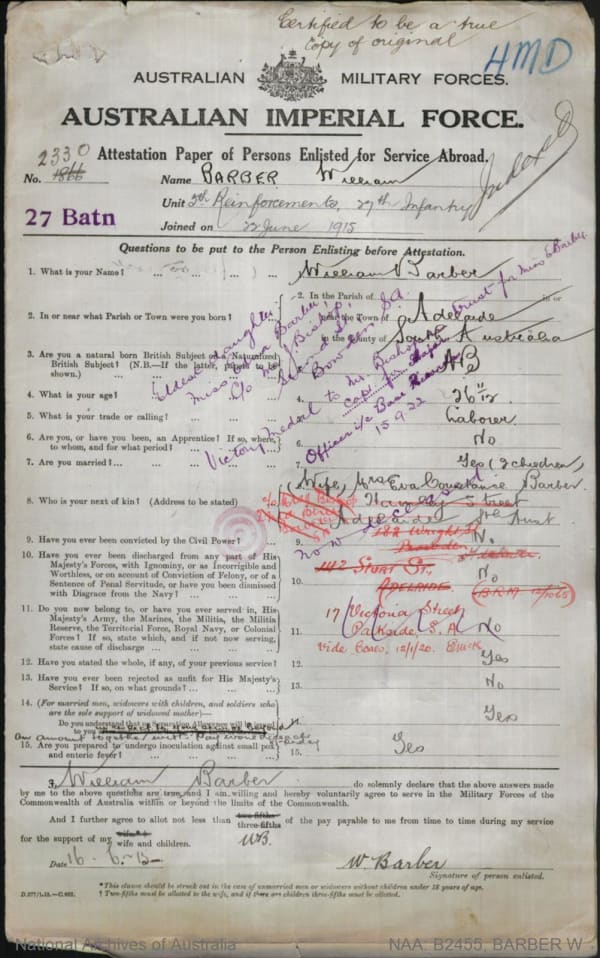 Certified to be a true
Copy of original
HMD
AUSTRALIAN MILITARY FORCES.
AUSTRALIAN IMPERIAL FORCE.
Attestation Paper of Persons Enlisted for Service Abroad.
2330
No. 1866 Name BARBER William
Indexed
Unit Reinforcements, 27th Infantry
27 Batn
Joined on 22 June 1915
Questions to be put to the Person Enlisting before Attestation.
1. What is your Name? William Barber
2. In or near what Parish or Town were you born? 2. In the Parish of in or
near the Town of Adelaide
in the County of South Australia
3. Are you a natural born British Subject or a Naturalized
British Subject? (N.B.—If the latter, papers to be
shown.) 3. NB
4. What is your age? 4. 26
5. What is your trade or calling? 5. Laborer
6. Are you, or have you been, an Apprentice? If so, where,
to whom, and for what period? 6. No
7. Are you married? 7. Yes (children)
Eldest daughter
Miss Barber,
c/o Mr J. Bishop
Bowden SA
Victory Medal to Mr. Bishop in trust for Miss E Barber
Officer i/c Base Records
15.9.22
8. Who is your next of kin? (Address to be stated) (Wife) Mrs Eva Constance Barber
8. Street
Adelaide Sth Aust
9. Have you ever been convicted by the Civil Power? 9. No
10. Have you ever been discharged from any part of His
Majesty's Forces, with Ignominy, or as Incorrigible and
Worthless, or on account of Conviction of Felony, or of a
Sentence of Penal Servitude, or have you been dismissed
with Disgrace from the Navy? 10. No
142 STURT ST.
ADELAIDE.
17 Victoria Street
Parkside, S.A.
12/1/20.
11. Do you now belong to, or have you ever served in, His
Majesty's Army, the Marines, the Militia, the Militia
Reserve, the Territorial Force, Royal Navy, or Colonial
Forces? If so, state which, and if not now serving,
state cause of discharge 11. No
12. Have you stated the whole, if any, of your previous service? 12. Yes
13. Have you ever been rejected as unfit for His Majesty's
Service? If so, on what grounds? 13. No
14. (For married men, widowers with children, and soldiers who
are the sole support of widowed mother)—
Do you understand that no Separation Allowance will be
to you 14. Yes
an amount together with pay
15. Are you prepared to undergo inoculation against small pox
and enteric fever? 15. Yes
I, William Barber do solemnly declare that the above answers made
by me to the above questions are true, and I am willing and hereby voluntarily agree to serve in the Military Forces of the
Commonwealth of Australia within or beyond the limits of the Commonwealth.
And I further agree to allot not less than two-fifths three-fifths of the pay payable to me from time to time during my service
for the support of my wife wife and children. WB.
Date 16.6.15
W Barber
Signature of person enlisted.
*This clause should be struck out in the case of unmarried men or widowers without children under 18 years of age.
† Two-fifths must be allotted to the wife, and if there are children three-fifths must be allotted.
D.277/1.15.—C.662.
National Archives of Australia
NAA: B2455, BARBER W